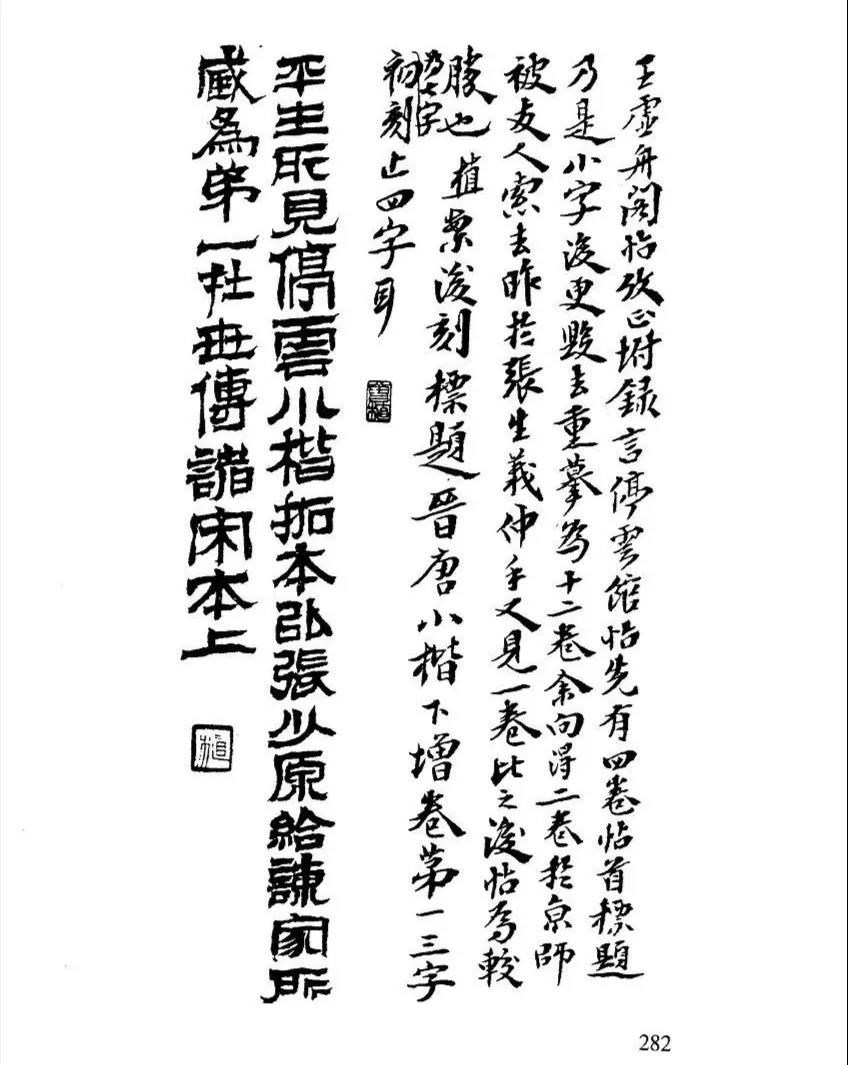 王虛舟閣帖攷正坿錄言停雲館帖先有四卷帖首標題
乃是小字後更毀去重摹為十二卷余向得二卷於京師
被友人索去昨於張生義仲手又見一卷比之後帖為較
勝也 植案後刻標題晉唐小楷下增卷第一三字
為七字
初刻止四字耳
平生所見停雲小楷拓本以張少原給諫家所
藏為弟一在世傳諸宋本上
植
282